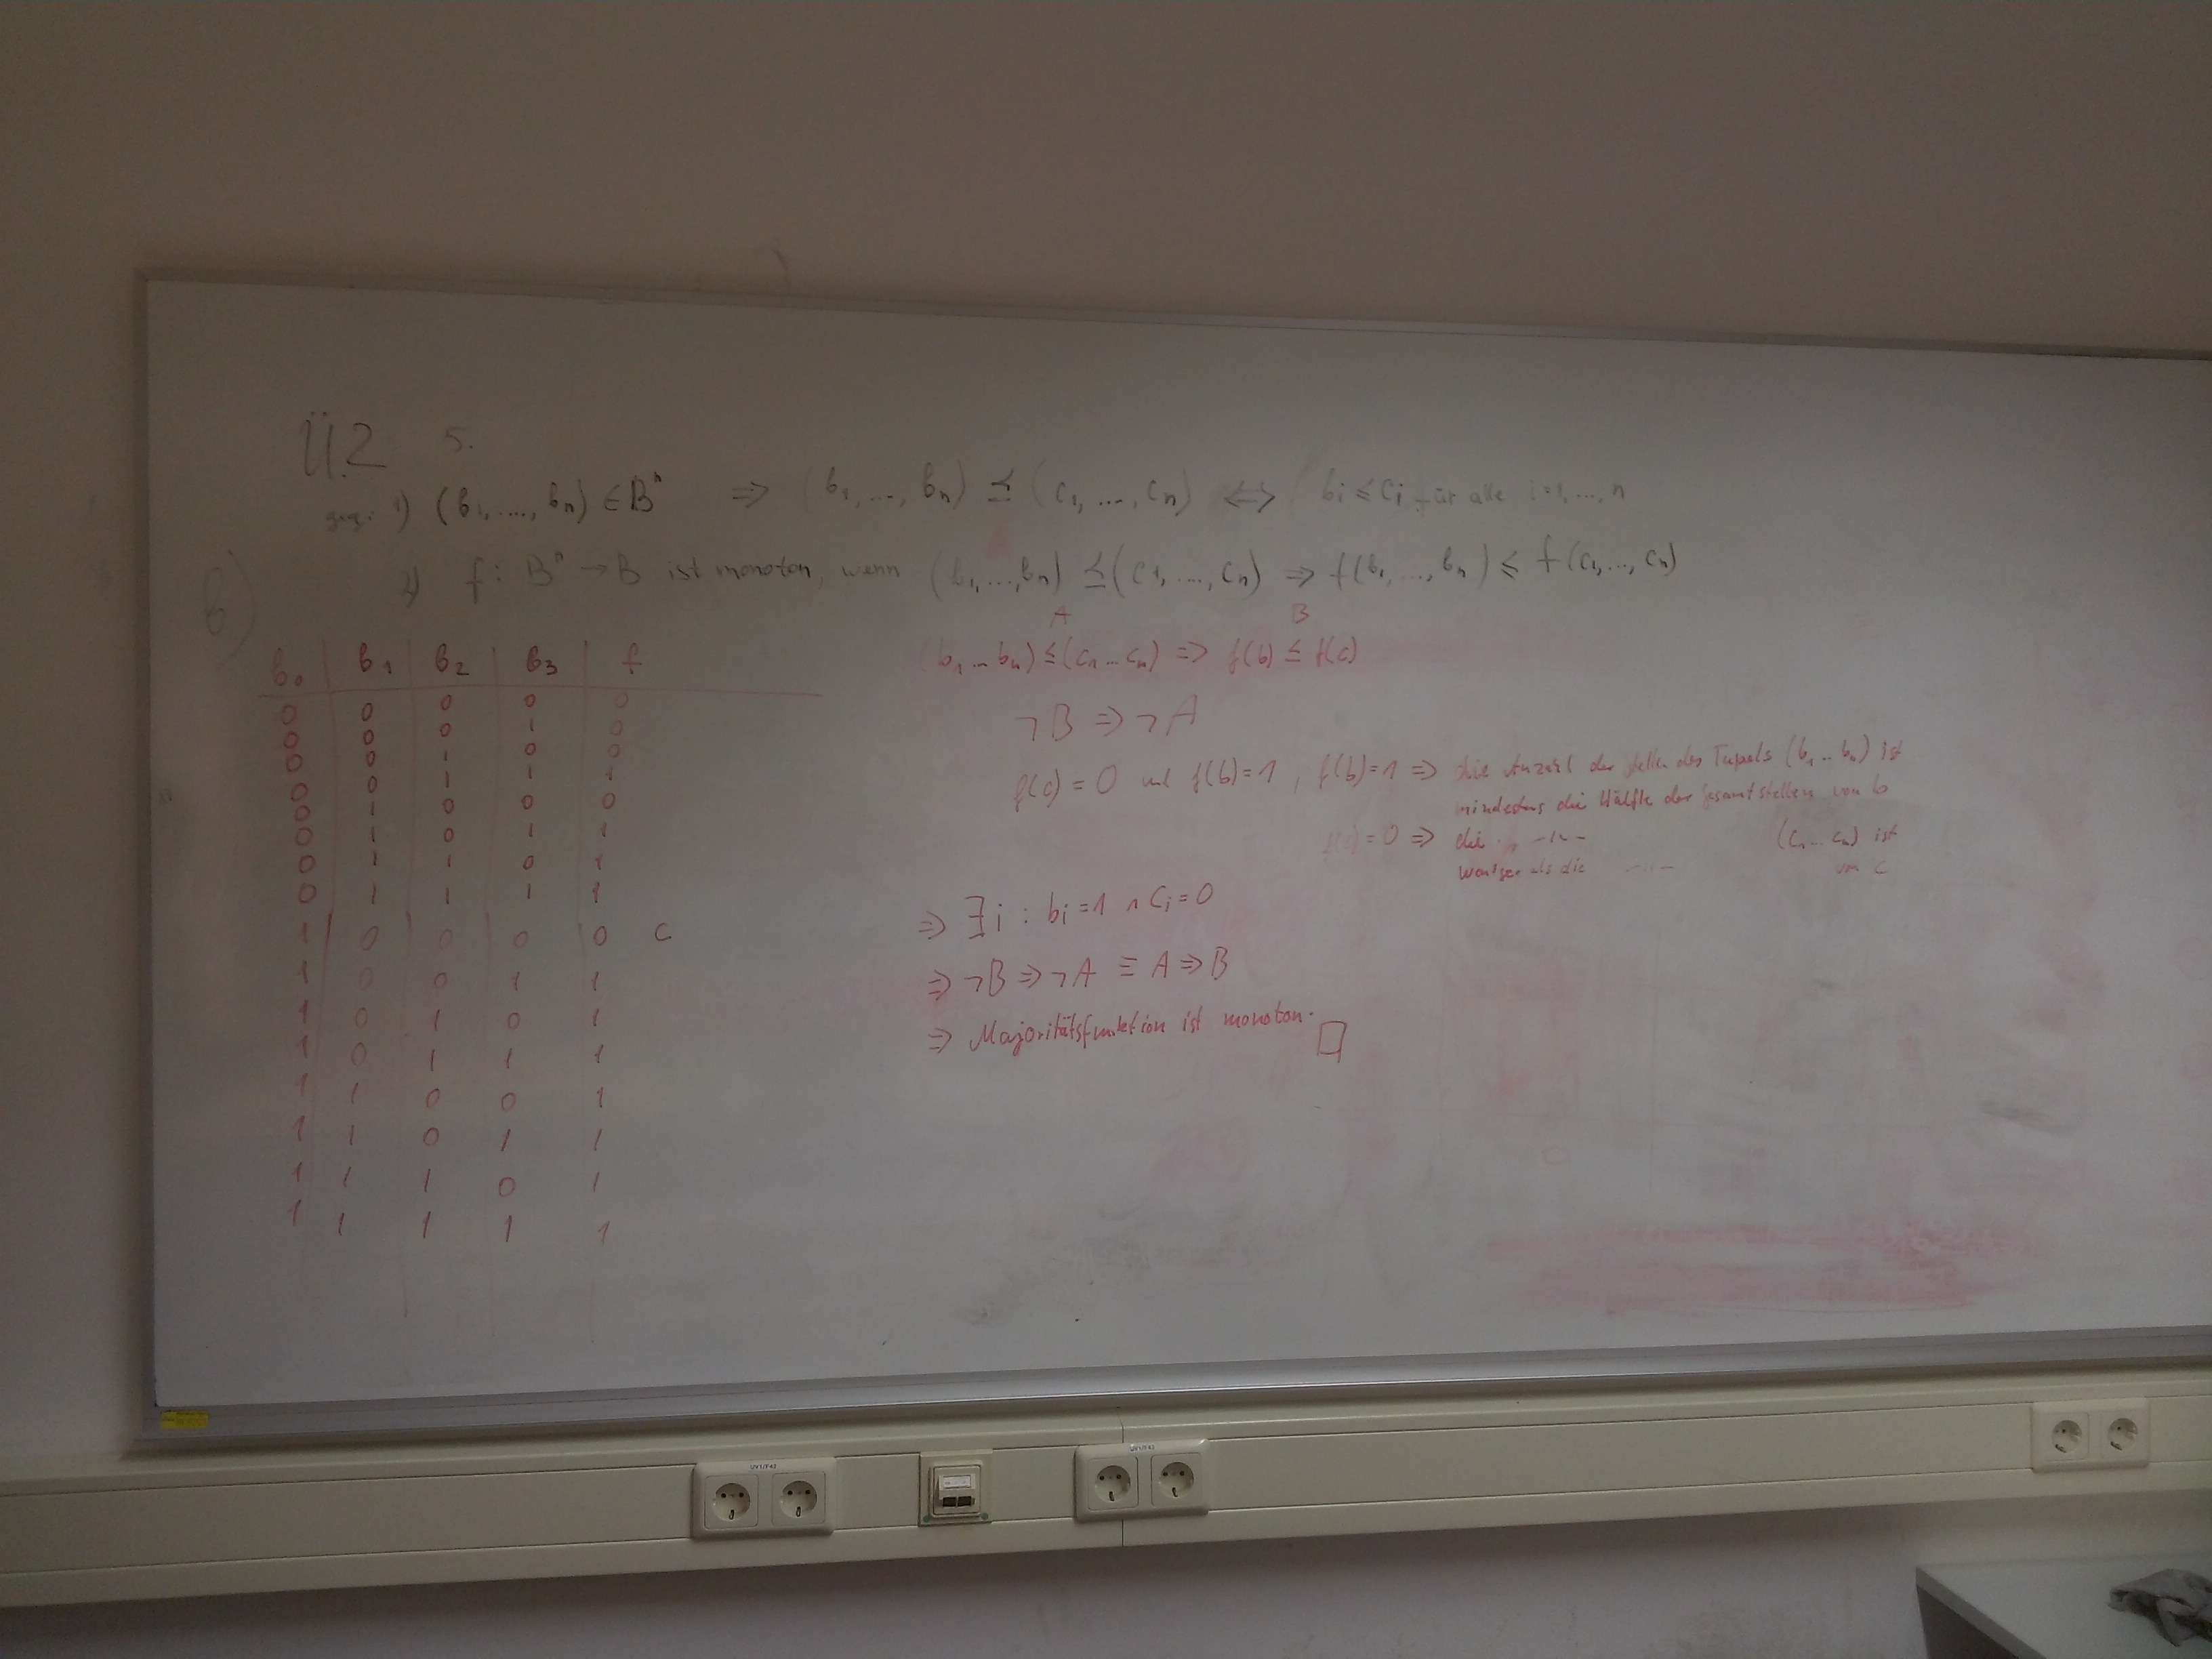 Ü.2 5.
geg: 1) (b₁, ..., bₙ) ∈ Bⁿ ⇒ (b₁, ..., bₙ) ⪯ (c₁, ..., cₙ) ⇔ bᵢ ≤ cᵢ für alle i=1, ..., n
2) f: Bⁿ → B ist monoton, wenn (b₁, ..., bₙ) ⪯ (c₁, ..., cₙ) ⇒ f(b₁, ..., bₙ) ≤ f(c₁, ..., cₙ)
b)
b₀ b₁ b₂ b₃ f
0 0 0 0 0
0 0 0 1 0
0 0 1 0 0
0 0 1 1 1
0 1 0 0 0
0 1 0 1 1
0 1 1 0 1
0 1 1 1 1
1 0 0 0 0 c
1 0 0 1 1
1 0 1 0 1
1 0 1 1 1
1 1 0 0 1
1 1 0 1 1
1 1 1 0 1
1 1 1 1 1
A B
(b₁ ... bₙ) ≤ (c₁ ... cₙ) ⇒ f(b) ≤ f(c)
¬B ⇒ ¬A
f(c) = 0 und f(b)=1, f(b)=1 ⇒ die Anzahl der Stellen des Tupels (b₁ .. bₙ) ist
mindestens die Hälfte der Gesamtstellen von b
f(c)=0 ⇒ die -"- (c₁ ... cₙ) ist
weniger als die -"- von c
⇒ ∃i : bᵢ=1 ∧ cᵢ=0
⇒ ¬B ⇒ ¬A ≡ A ⇒ B
⇒ Majoritätsfunktion ist monoton. □
UV1/F42
UV1/F43